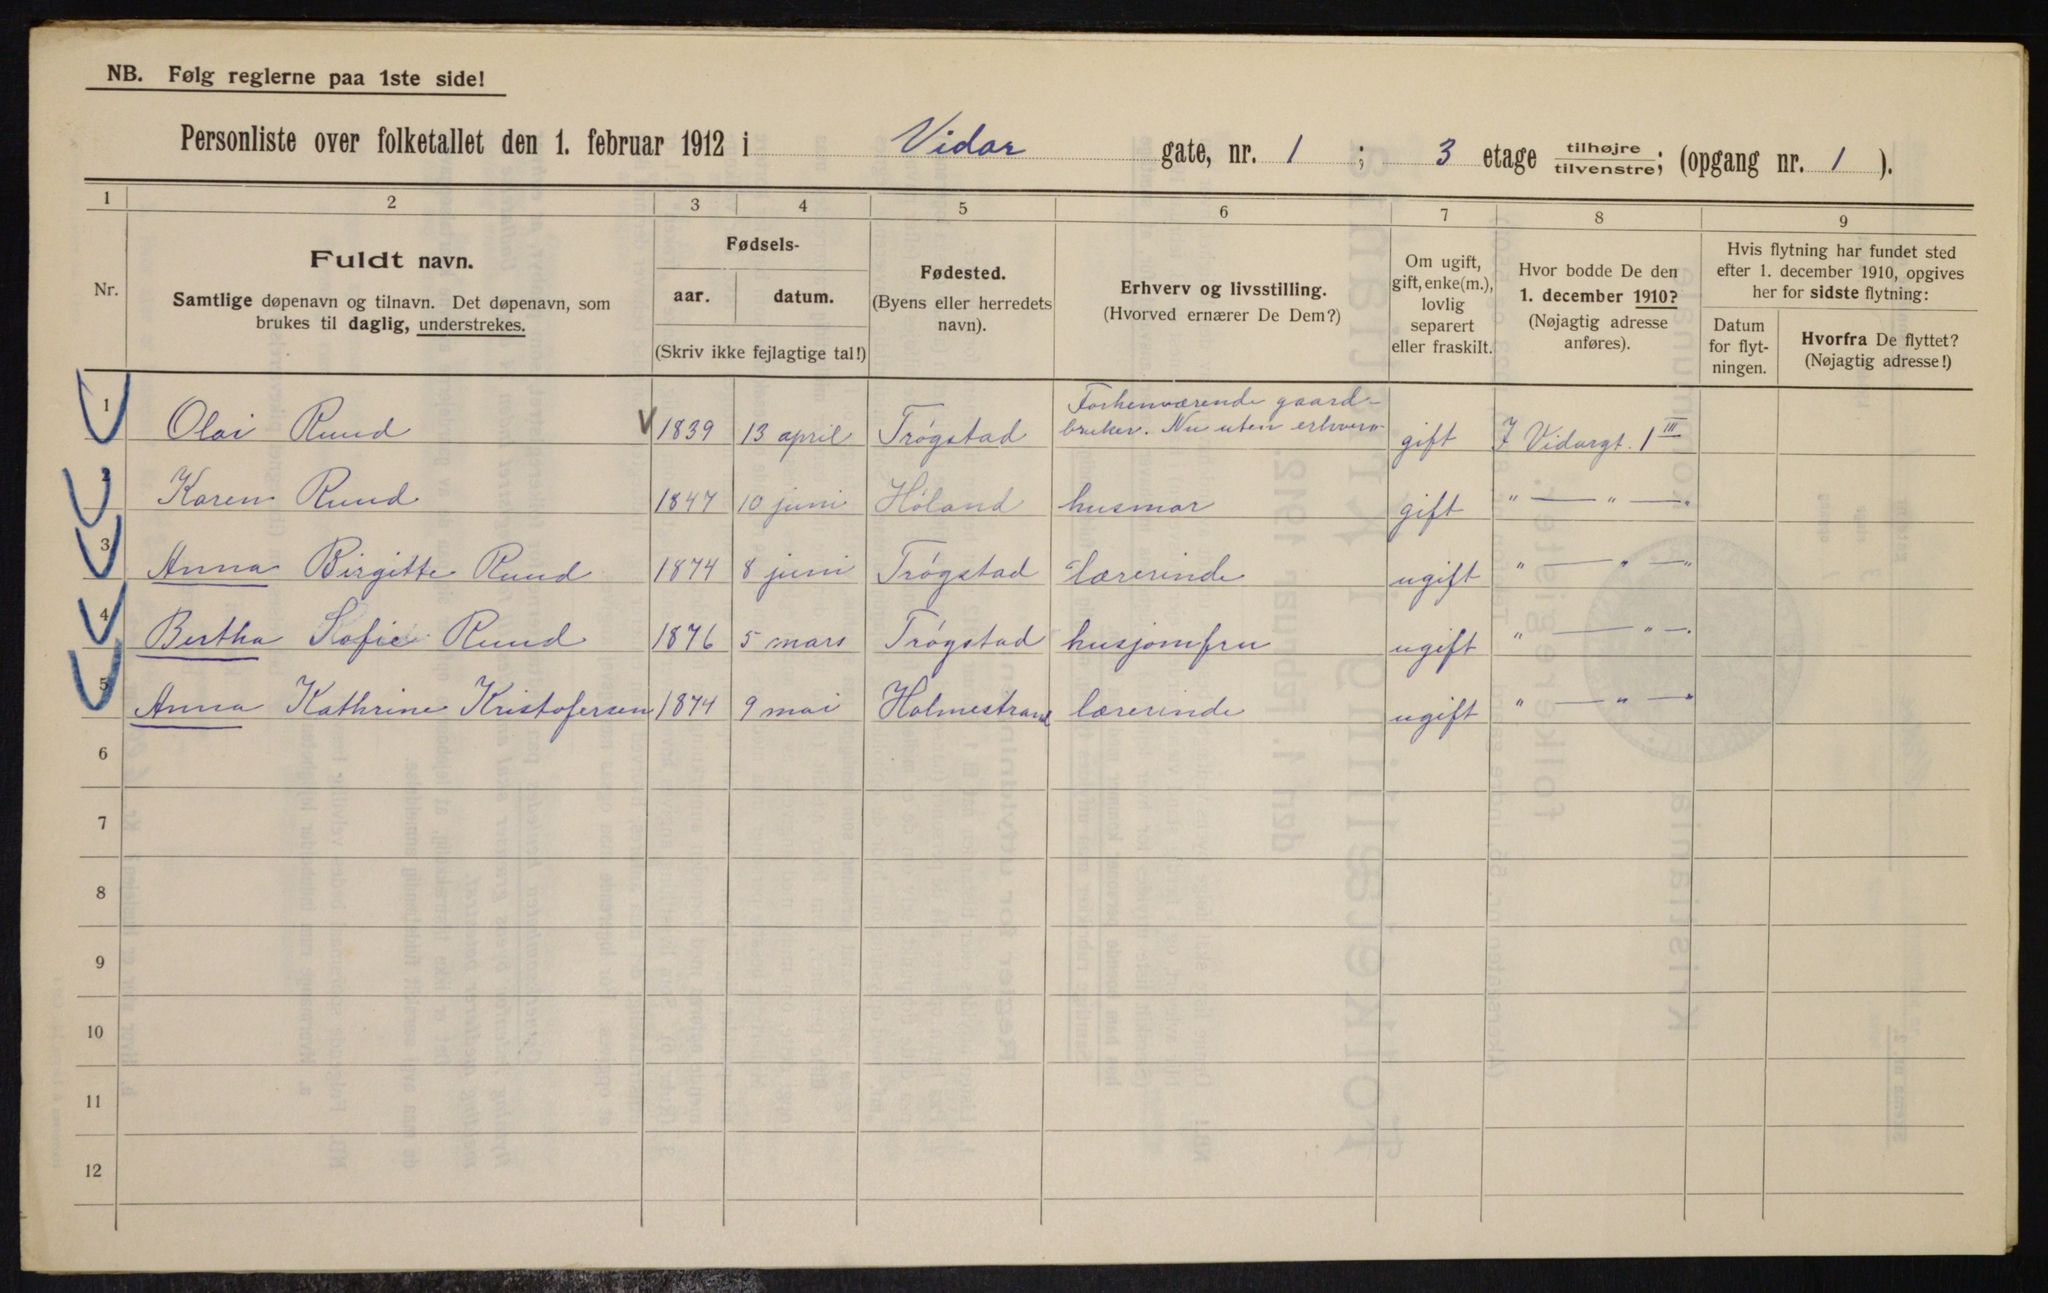 NB. Følg reglerne paa 1ste side!
Personliste over folketallet den 1. februar 1912 i Vidar gate, nr. 1 ; 3 etage tilhøjre/tilvenstre; (opgang nr. 1 ).
1 2 3 4 5 6 7 8 9
Nr.
Fuldt navn.
Samtlige døpenavn og tilnavn. Det døpenavn, som
brukes til daglig, understrekes.
Fødsels-
aar. datum.
(Skriv ikke fejlagtige tal!)
Fødested.
(Byens eller herredets
navn).
Erhverv og livsstilling.
(Hvorved ernærer De Dem?)
Om ugift,
gift, enke(m.),
lovlig
separert
eller fraskilt.
Hvor bodde De den
1. december 1910?
(Nøjagtig adresse
anføres).
Hvis flytning har fundet sted
efter 1. december 1910, opgives
her for sidste flytning:
Datum
for flyt-
ningen.
Hvorfra De flyttet?
(Nøjagtig adresse!)
1 Olai Ruud 1839 13 april Trøgstad Forhenværende gaard-
bruker. Nu uten erhverv gift I Vidargt. 1 III
2 Karen Ruud 1847 10 juni Høland husmor gift " — " —"
3 Anna Birgitte Ruud 1874 8 juni Trøgstad Lærerinde ugift " — " —"
4 Bertha Sofie Ruud 1876 5 mars Trøgstad husjomfru ugift " — " —"
5 Anna Kathrine Kristofersen 1874 9 mai Holmestrand lærerinde ugift " — " —"
6
7
8
9
10
11
12